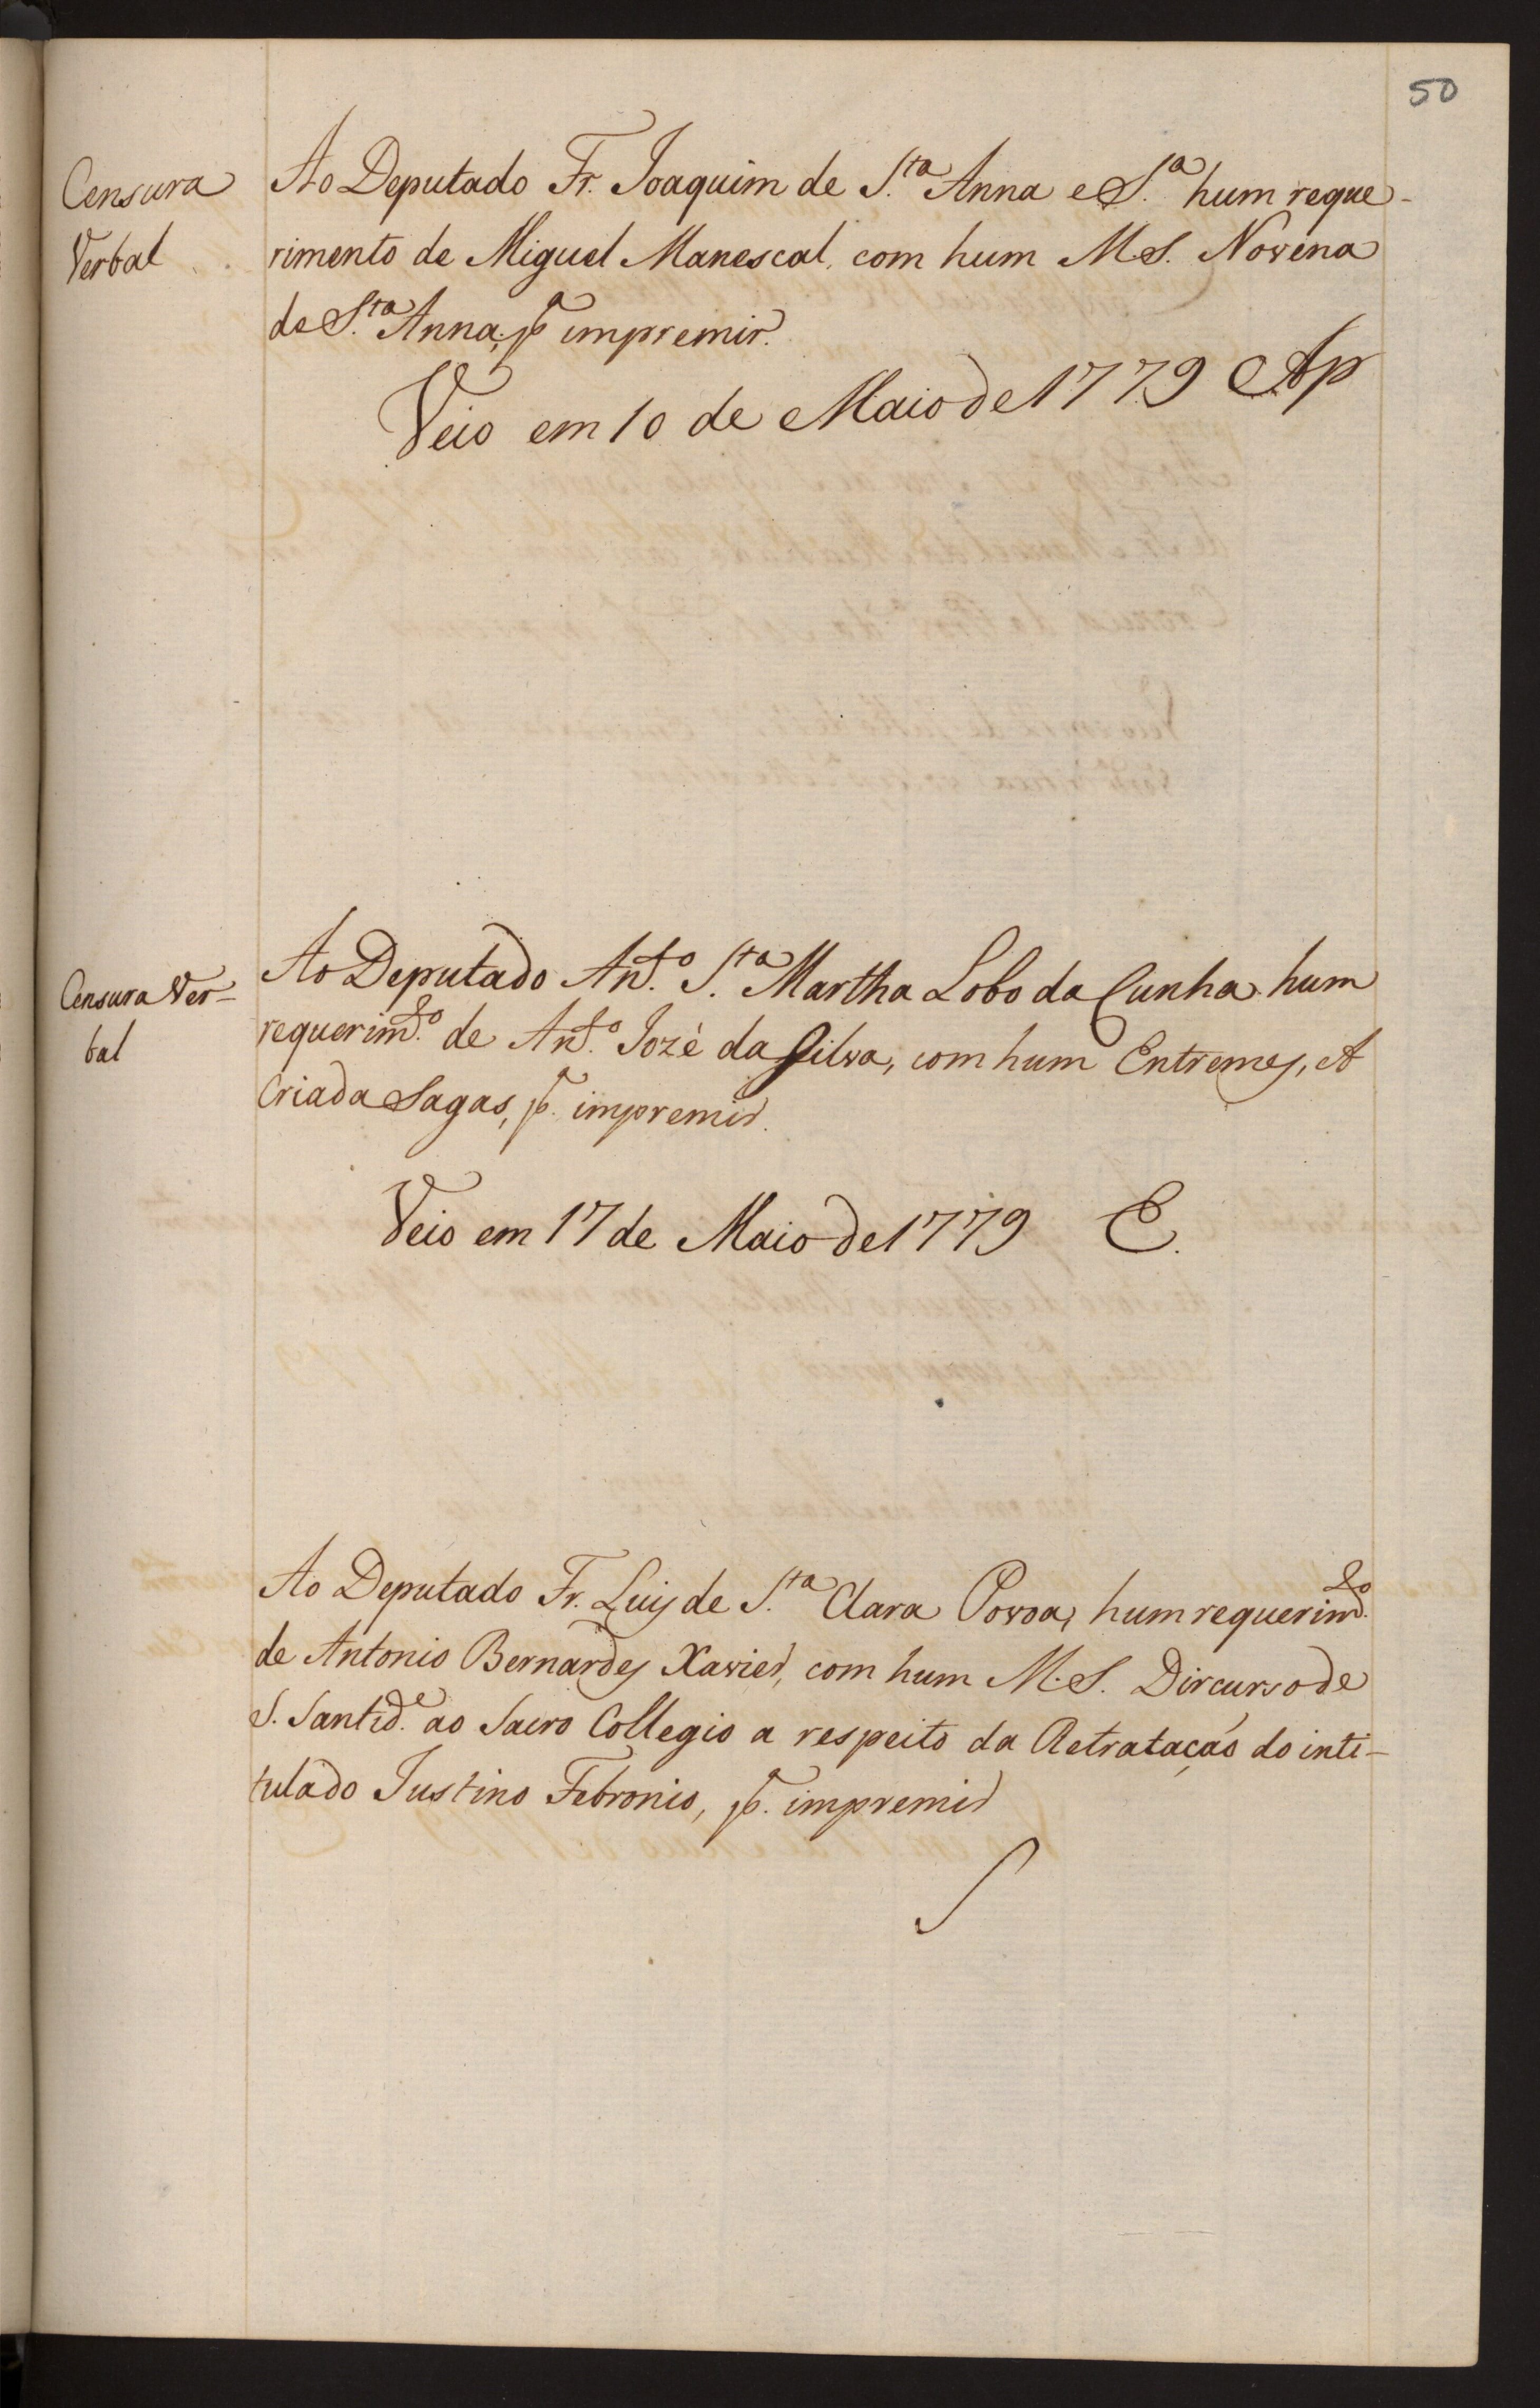 50
Censura
Verbal
Ao Deputado Fr. Joaquim de S.ta Anna e S.a hum reque-
rimento de Miguel Manescal, com hum M.S. Novena
de S.ta Anna, p.a impremir.
Veio em 10 de Maio de 1779 Ap
Censura Ver-
bal
Ao Deputado Ant.o S.ta Martha Lobo da Cunha hum
requerim.to de Ant.o Jozé da Silva, com hum Entremes, A
Criada Sagas, p.a impremir.
Veio em 17 de Maio de 1779 E.
Ao Deputado Fr. Luis de S.ta Clara Povoa, hum requerim.to
de Antonio Bernardes Xavier, com hum M.S. Discurso de
S. Santid.e ao Sacro Collegio a respeito da Retratação do inti-
tulado Justino Febronio, p.a impremir